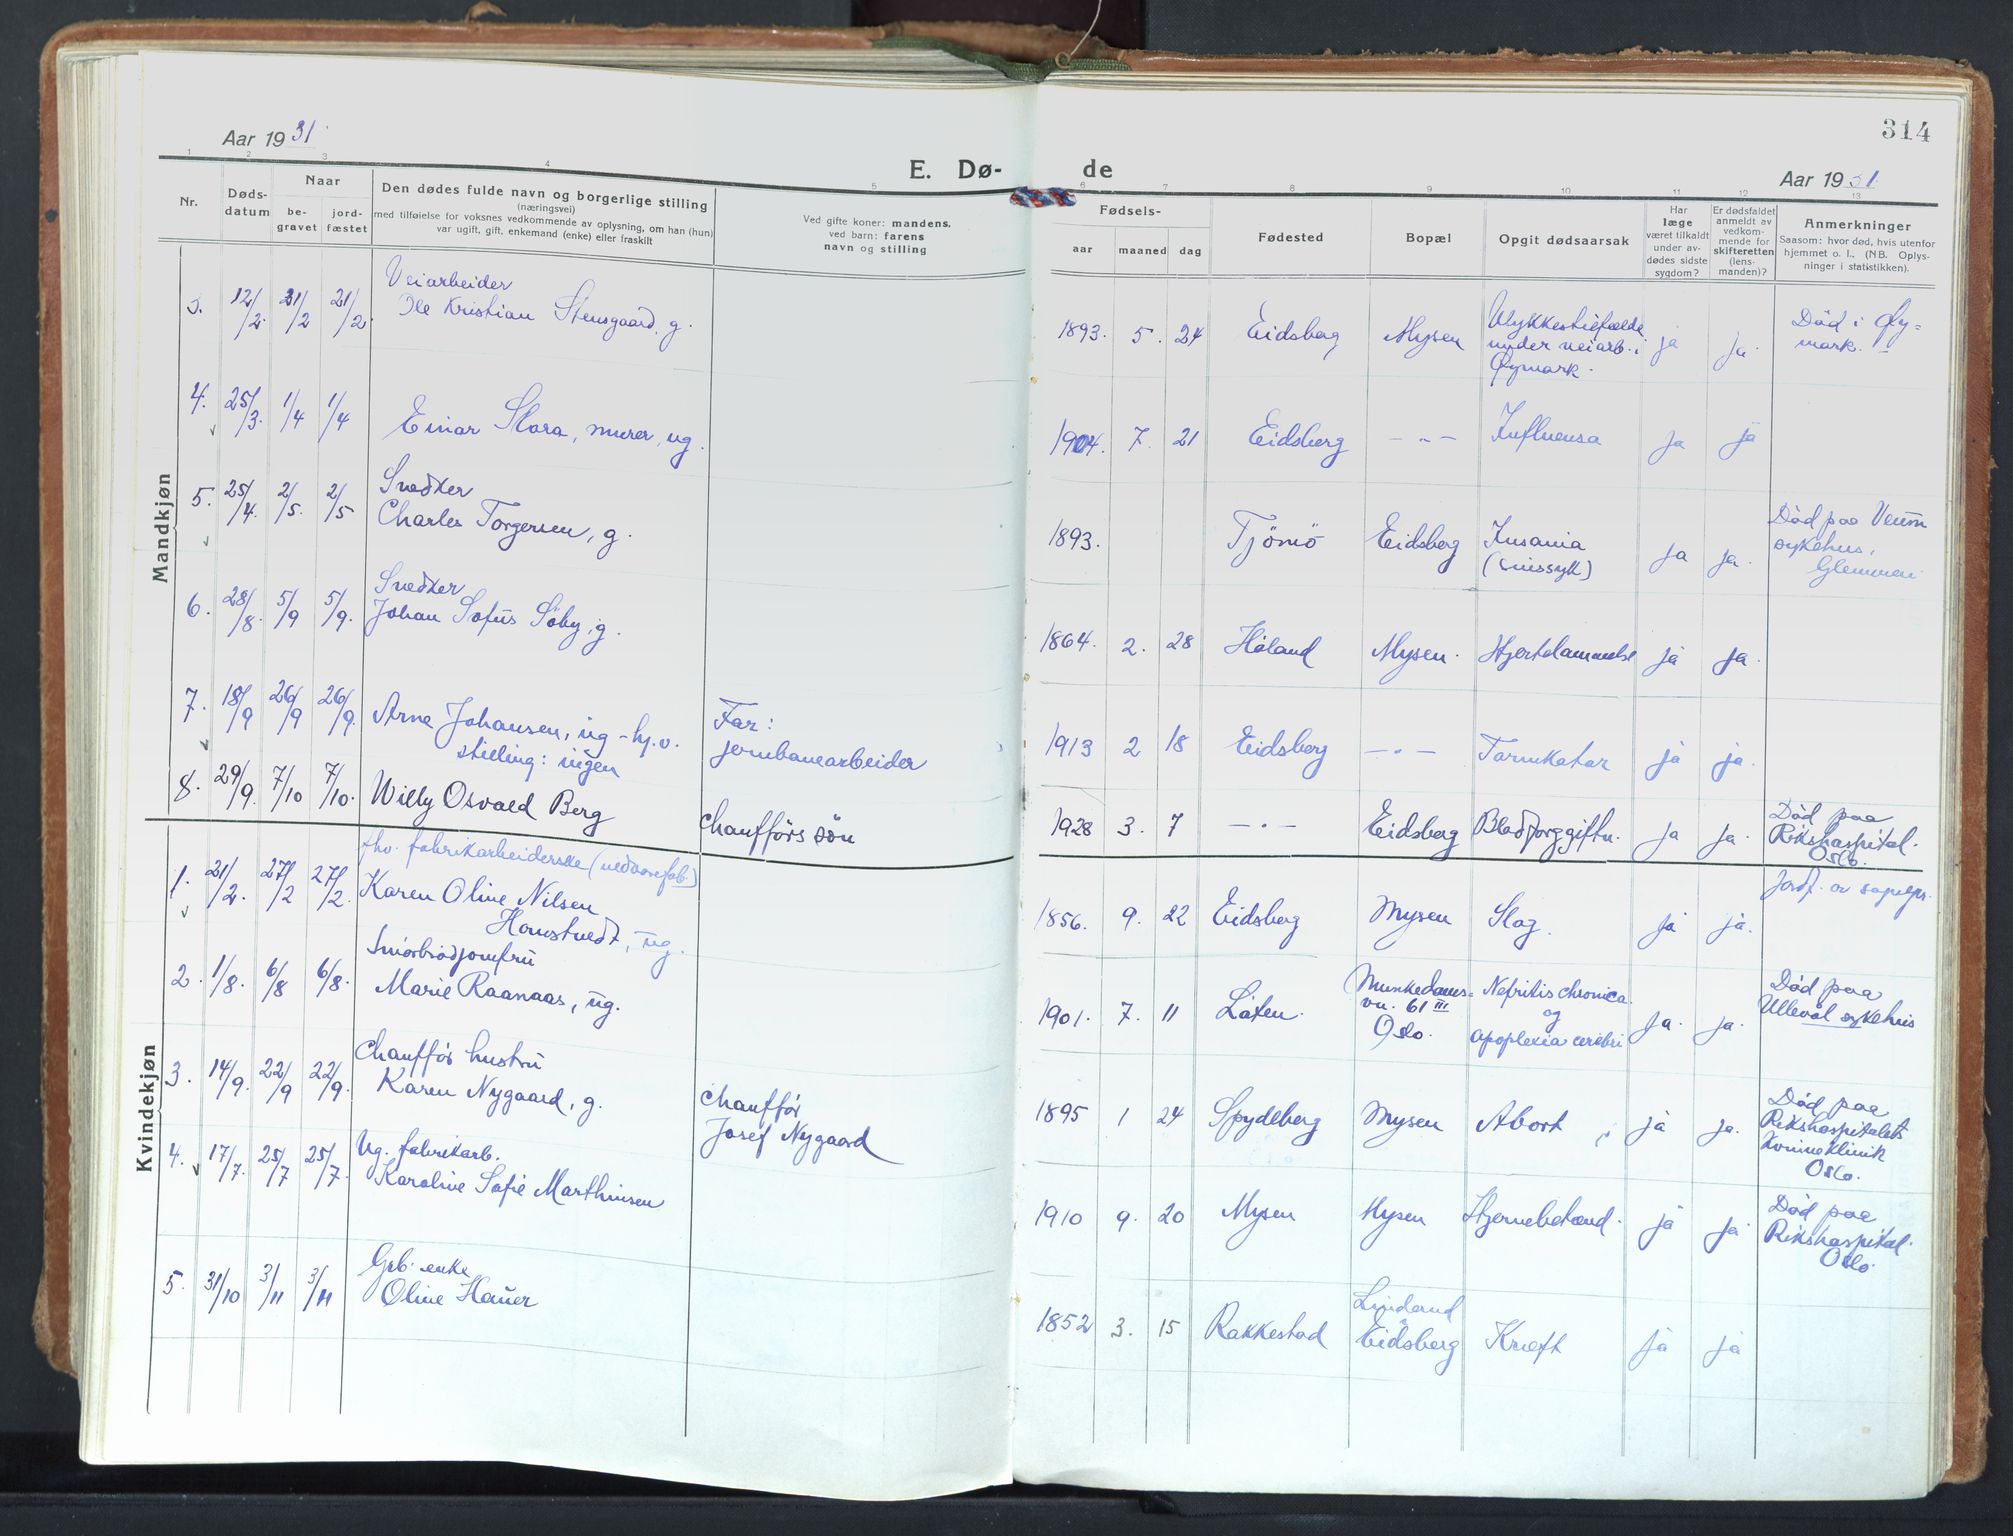 Aar 1931.
314
E. Dø-de
Aar 1931.
1 2 3 4 5 6 7 8 9 10 11 12 13
Nr.
Døds-datum
Naar
be-gravet
jord-fæstet
Den dødes fulde navn og borgerlige stilling
(næringsvei)
med tilføielse for voksnes vedkommende av oplysning, om han (hun)
var ugift, gift, enkemand (enke) eller fraskilt
Ved gifte koner: mandens,
ved barn: farens
navn og stilling
Fødsels-
aar maaned dag
Fødested
Bopæl
Opgit dødsaarsak
Har
læge
været tilkaldt
under av-
dødes sidste
sygdom?
Er dødsfaldet
anmeldt av
vedkom-
mende for
skifteretten
(lens-
manden)?
Anmerkninger
Saasom: hvor død, hvis utenfor
hjemmet o. l., (NB. Oplys-
ninger i statistikken).
Mandkjøn
3. 12/2. 21/2 21/2. Veiarbeider
Ole Kristian Stensgaard, g.
1893. 5. 24 Eidsberg Mysen Ulykkestilfælde
under veiarb. i
Øymark. ja ja. Død i Øy=
mark.
4. 25/3. 1/4 1/4 Einar Skara, murer, ug.
1904. 7. 21 Eidsberg -"- Influensa ja ja
5. 25/4. 2/5. 2/5 Snedker
Charles Torgersen, g.
1893. Tjömö Eidsberg Insania
(sinssyk) ja ja. Død paa Veum
sykehus,
Glemmen
6. 28/8. 5/9 5/9. Snedker
Johan Sofus Söby, g.
1864. 2. 28 Høland Mysen. Hjertelammelse ja ja.
7. 18/9 26/9 26/9. Arne Johansen, ug - hj.v.
stilling: ingen
Far:
jernbanearbeider
1913 2 18 Eidsberg -"- Tarmkatar ja ja.
8. 29/9. 7/10 7/10. Willy Osvald Berg
chaufförs sön
1928 3. 7 -"- Eidsberg Blodforggiftn. ja ja. Død paa
Rikshospital.
Oslo.
Kvindekjøn
1. 21/2. 27/2 27/2. fhv. fabrikarbeiderske
Karen Oline Nilsen
Homstvedt, ug.
1856. 9. 22 Eidsberg Mysen Slag. ja ja. Jordf. av sognepr.
2. 1/8. 6/8 6/8. Smörbrödjomfru
Marie Raanaas, ug.
1901. 7. 11 Löten. Munkedams=
vn. 61 III
Oslo. Nefritis chronica
og
apoplexia cerebri ja. ja. Død paa
Ullevål sykehus
3. 14/9. 22/9 22/9. Chauffør hustru
Karen Nygaard, g.
chauffør
Josef Nygaard
1895 1 24 Spydeberg Mysen Abort ja ja. Død paa
Rikshospitalets
Kvinneklinik
Oslo.
4. 17/7. 25/7 25/7. Ug. fabrikarb.
Karoline Sofie Marthinsen
1910 9. 20 Mysen Mysen Hjernebetænd. ja ja Død paa
Rikshospital.
Oslo.
5. 31/10 3/11 3/11 Grb. enke
Oline Hauer
1852 3. 15 Rakkestad
Eidsberg Kræft ja ja